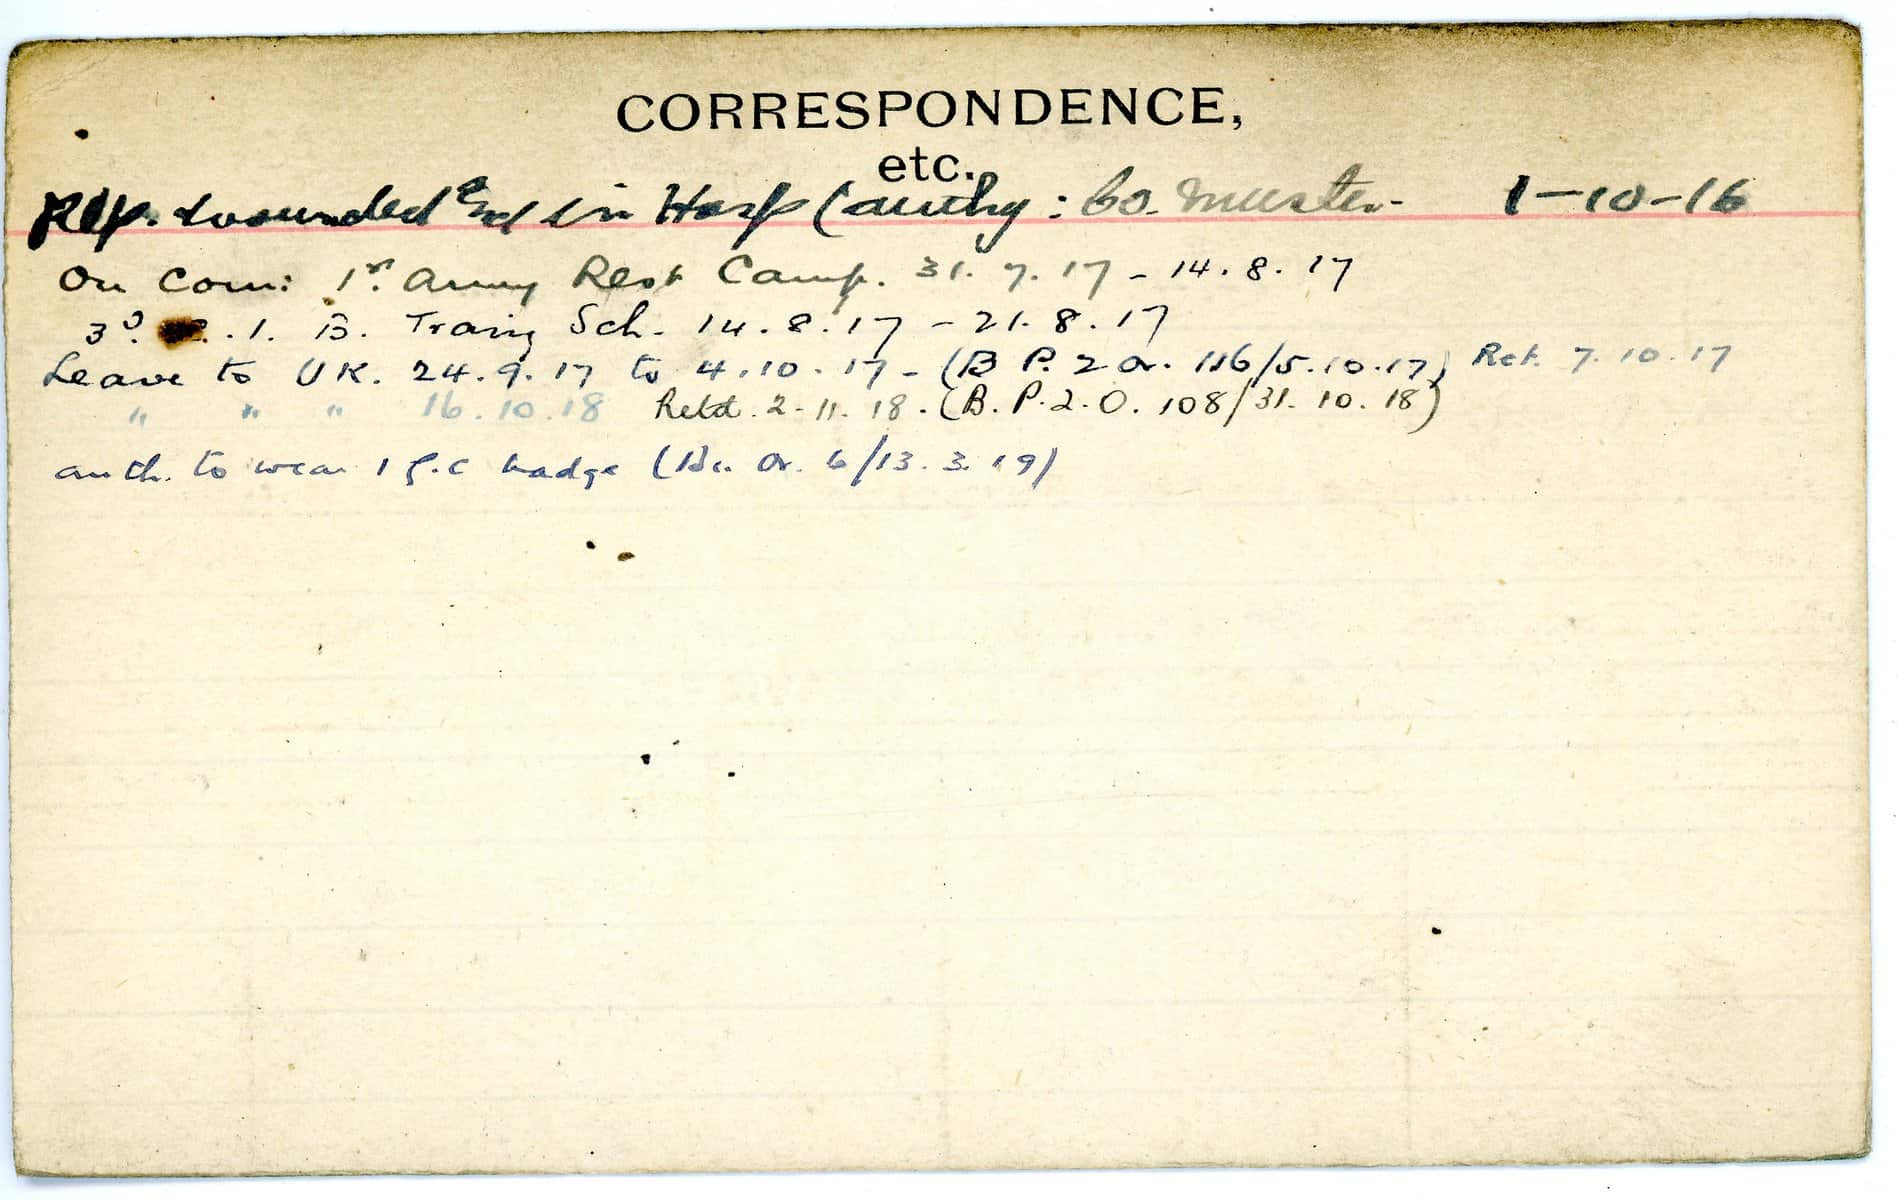 CORRESPONDENCE,
etc.
Rep. wounded & in Hosp (authy: Co. Muster- 1-10-16
On Com: 1st Army Rest Camp. 31.7.17 - 14.8.17
3rd. .I. B. Traing Sch. 14.8.17 - 21.8.17
Leave to UK. 24.9.17 to 4.10.17 - (B P. 2 Or. 116/5.10.17) Ret. 7.10.17
" " " 16.10.18 Retd. 2-11-18. (B.P.2.O. 108/31.10.18)
auth. to wear 1 G.C badge ( Or. 6/13.3.19)